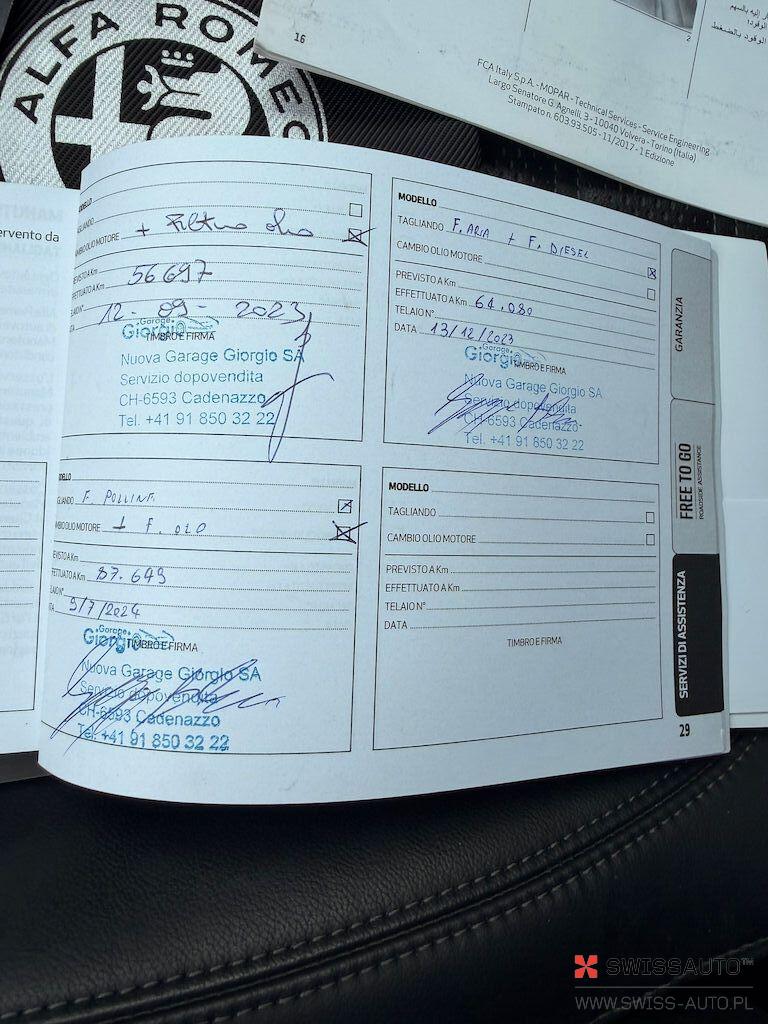 ALFA ROMEO
16
2
FCA Italy S.p.A. - MOPAR - Technical Services - Service Engineering
Largo Senatore G. Agnelli, 3 - 10040 Volvera - Torino (Italia)
Stampato n. 603.93.505 - 11/2017 - 1 Edizione
ervento da
ODELLO
AGLIANDO
AMBIO OLIO MOTORE + Filtro olio
EVISTO A Km
FETTUATO A Km 56697
LAIO N°
TA 12-09-2023
Garage
Giorgio
TIMBRO E FIRMA
Nuova Garage Giorgio SA
Servizio dopovendita
CH-6593 Cadenazzo
Tel. +41 91 850 32 22
MODELLO
TAGLIANDO F. ARIA + F. DIESEL
CAMBIO OLIO MOTORE
PREVISTO A Km
EFFETTUATO A Km 64.080
TELAIO N°
DATA 13/12/2023
Garage
Giorgio
TIMBRO E FIRMA
Nuova Garage Giorgio SA
Servizio dopovendita
CH-6593 Cadenazzo
Tel. +41 91 850 32 22
DELLO
GLIANDO F. POLLINE
MBIO OLIO MOTORE + F. OLO
EVISTO A Km
FETTUATO A Km 87.649
LAIO N°
TA 9/7/2024
Garage
Giorgio
TIMBRO E FIRMA
Nuova Garage Giorgio SA
Servizio dopovendita
CH-6593 Cadenazzo
Tel. +41 91 850 32 22
MODELLO
TAGLIANDO
CAMBIO OLIO MOTORE
PREVISTO A Km
EFFETTUATO A Km
TELAIO N°
DATA
TIMBRO E FIRMA
GARANZIA
FREE TO GO
ROADSIDE ASSISTANCE
SERVIZI DI ASSISTENZA
29
SWISSAUTO™
WWW.SWISS-AUTO.PL